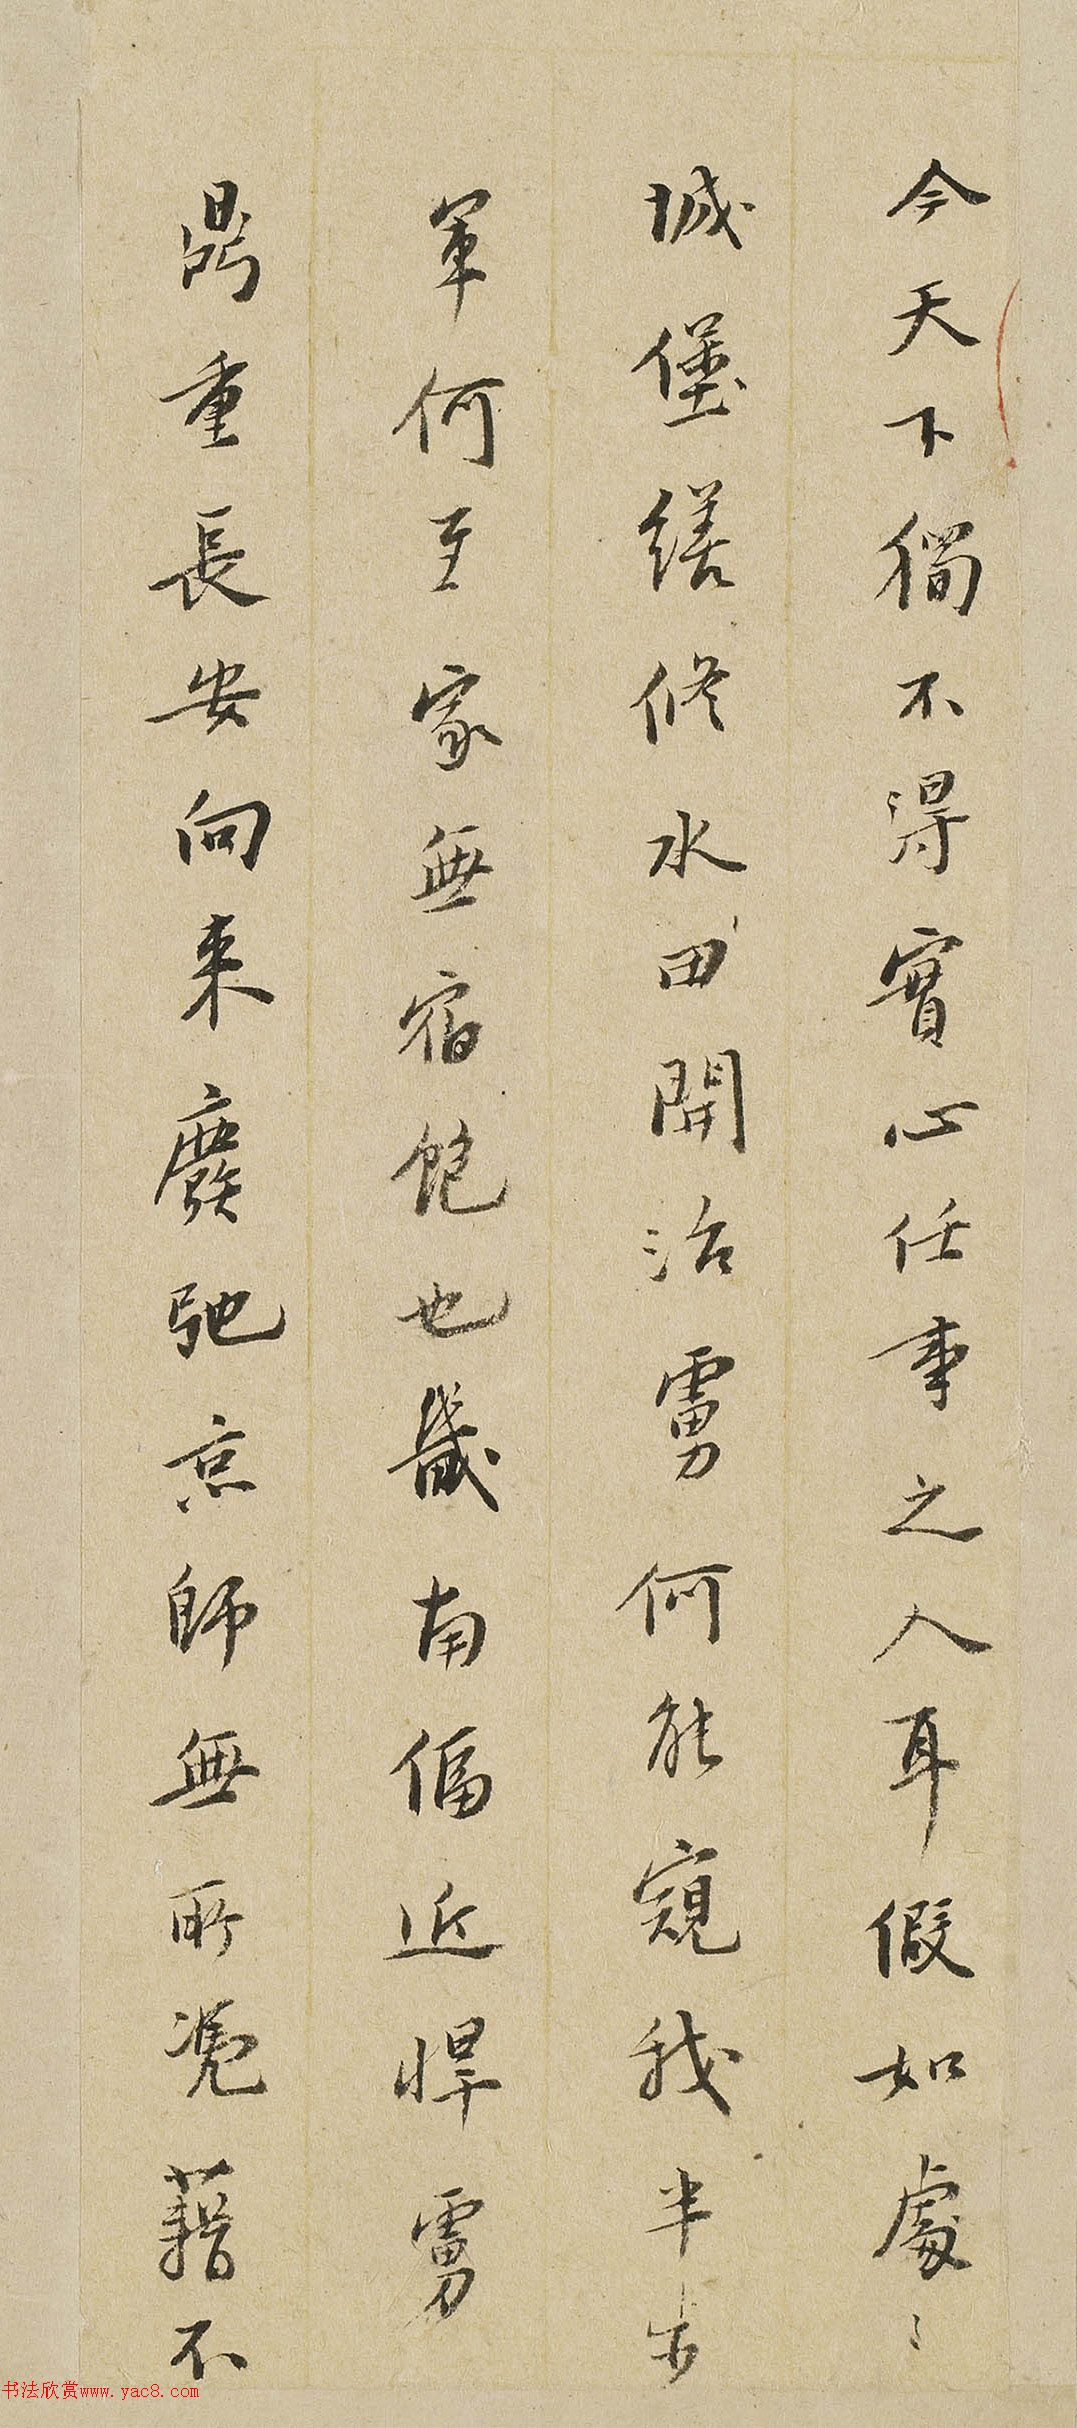 今天下獨不得實心任事之人耳假如處〻
城堡繕修水田開治虜何能窺我半步
軍何至家無宿飽也畿南偪近悍虜
鼎重長安向來廢弛京師無所凭藉不
书法欣赏www.yac8.com